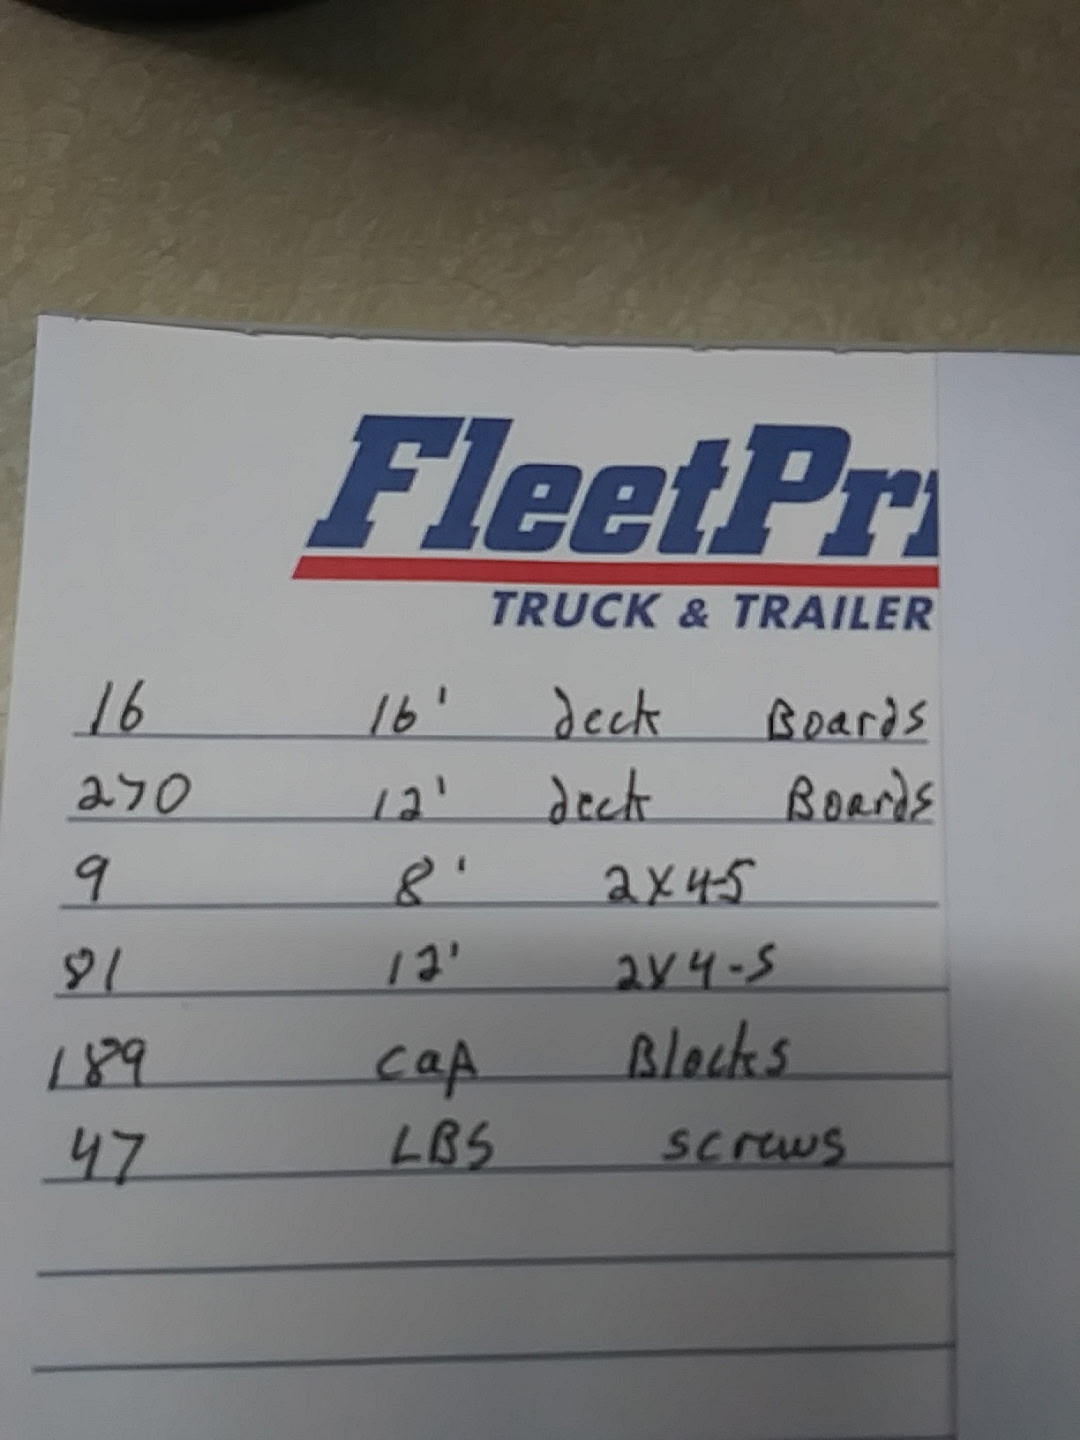 FleetPri
TRUCK & TRAILER
16 16' deck Boards
270 12' deck Boards
9 8' 2x4-S
81 12' 2x4-S
189 cap Blocks
47 LBS screws